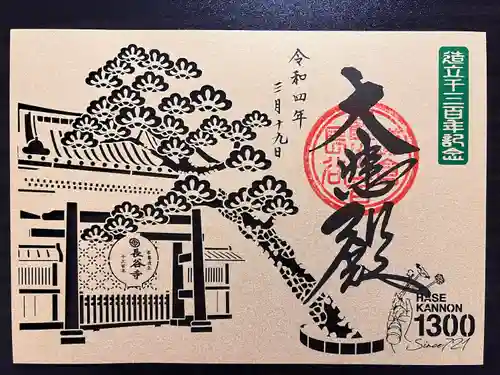 造立千三百年記念
大悲殿
令和四年
三月十九日
長谷寺
HASE
KANNON
1300
Since721